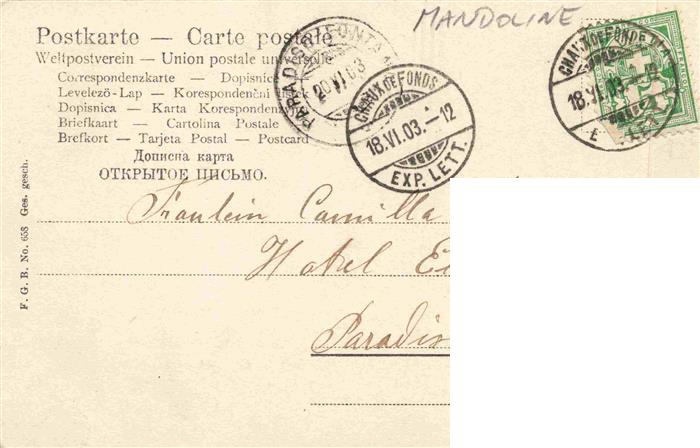 MANDOLINE
Postkarte — Carte postale
Weltpostverein — Union postale universelle
Correspondenzkarte — Dopisnice
Levelező-Lap — Korespondenční lístek
Dopisnica — Karta Korespondenzyi
Briefkaart — Cartolina Postale
Brefkort — Tarjeta Postal — Postcard
Дописна карта
ОТКРЫТОЕ ПИСЬМО.
PARADISO
20 VI 03
CHAUX DE FONDS
18.VI.03.–12
EXP. LETT.
CHAUX DE FONDS
18.VI.03.–12
F. G. B. No. 658 Ges. gesch.
Fräulein Camilla
Hotel
Paradis